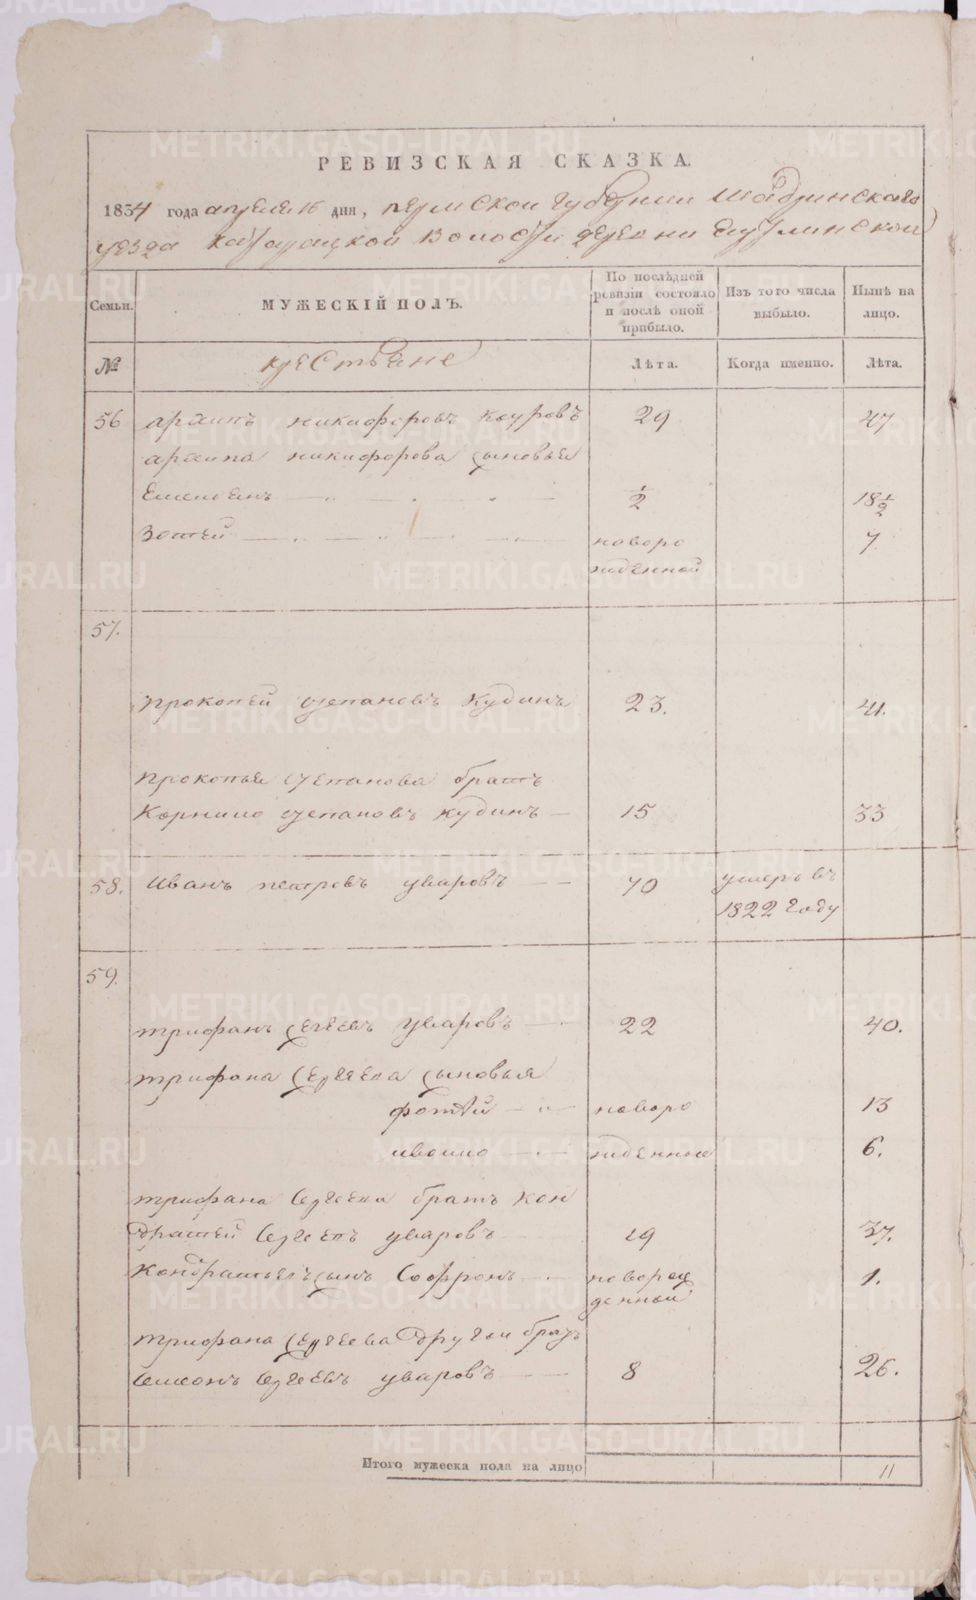 РЕВИЗСКАЯ СКАЗКА.
1834 года апреля 16 дня, пермской губернии Шадринского
уезда волости деревни
Семьи. МУЖЕСКІЙ ПОЛЪ. По послѣдней ревизіи состояло и послѣ оной прибыло. Изъ того числа выбыло. Нынѣ на лицо.
№ крестьяне Лѣта. Когда именно. Лѣта.
56 архипъ никифоровъ кауровъ 29 47
архипа никифорова сыновья
Емельянъ 1/2 18 1/2
Зотей новоро 7
жденной
57.
прокопей степановъ кудинъ 23. 41.
прокопья степанова братъ
Корнило степановъ кудинъ 15 33
58. иванъ петровъ уваровъ 70 умеръ въ
1822 году
59.
трифанъ сергеевъ уваровъ 22 40.
трифана сергеева сыновья
фотей новоро 13
ивойло жденной 6.
трифана сергеева братъ кон
дратей сергеевъ уваровъ 19 37.
Кондратья сынъ Софронъ новорож 1.
денной
трифана сергеева другой братъ
семенъ сергеевъ уваровъ 8 26.
Итого мужеска пола на лицо 11
METRIKI.GASO-URAL.RU